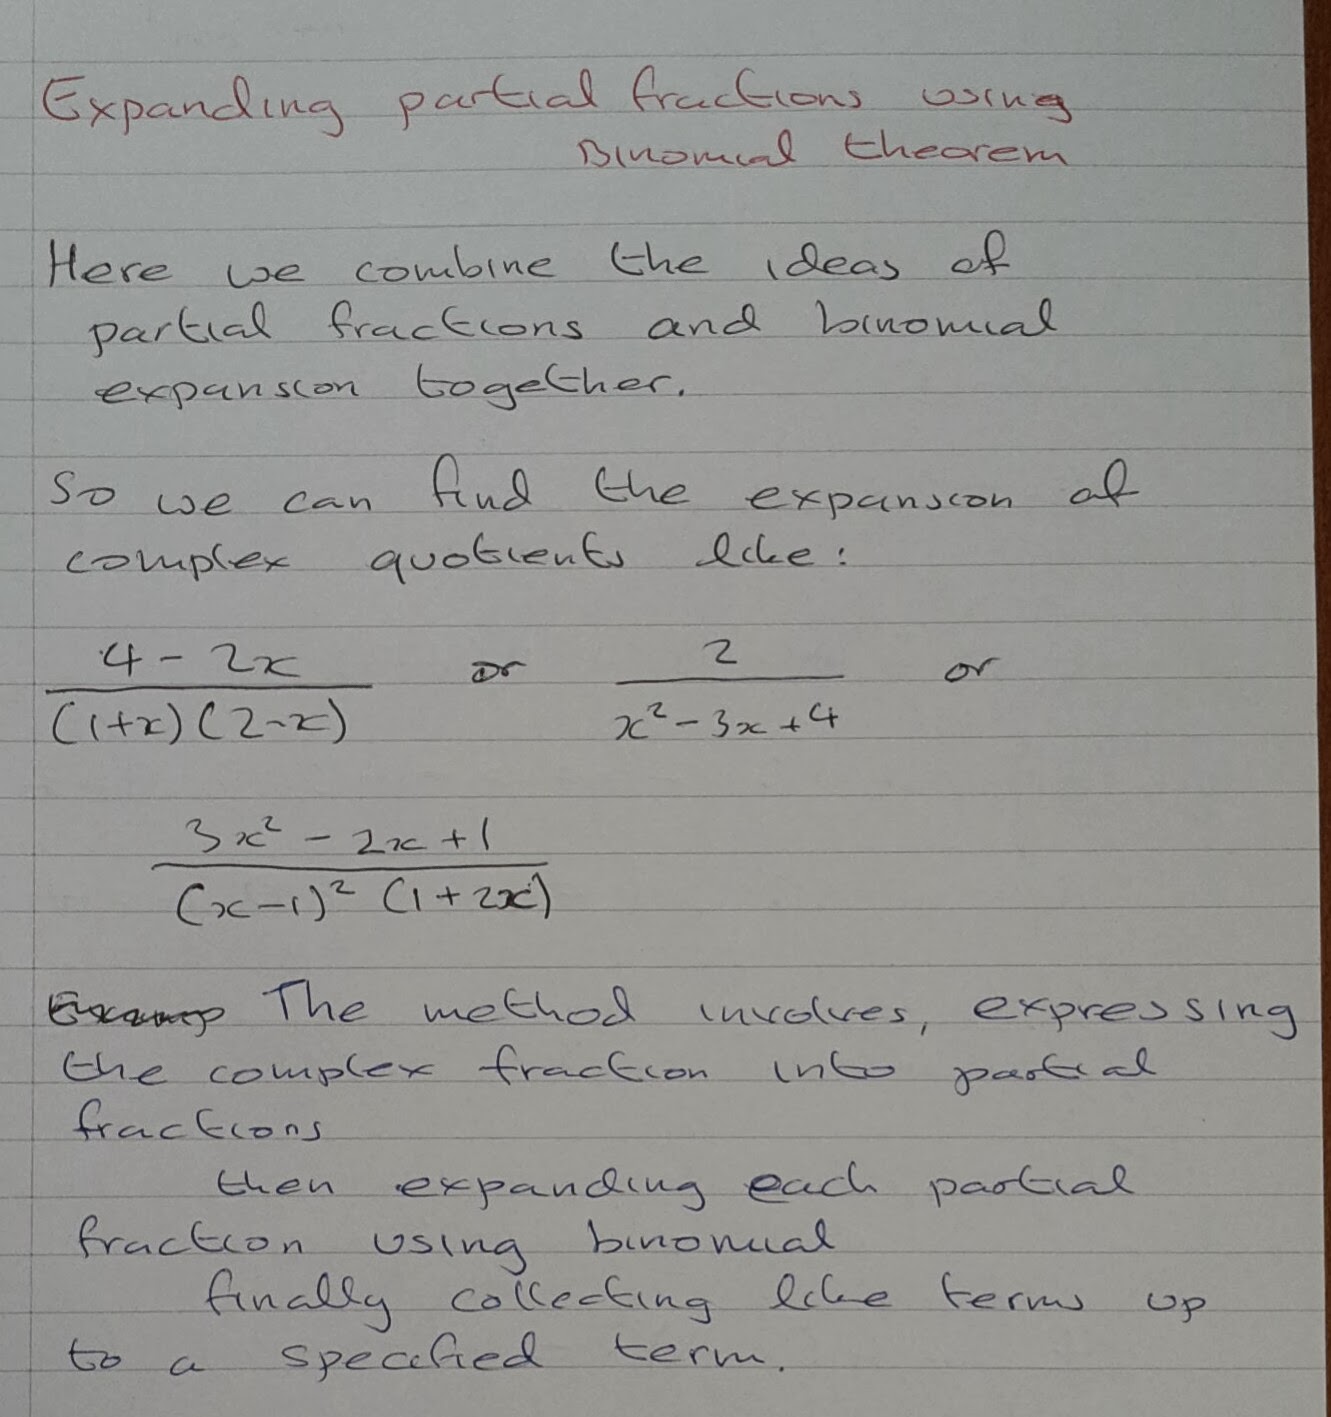 Expanding partial fractions using
Binomial theorem
Here we combine the ideas of
partial fractions and binomial
expansion together.
So we can find the expansion of
complex quotients like:
4 - 2x / (1+x)(2-x) or 2 / x² - 3x + 4 or
3x² - 2x + 1 / (x-1)² (1 + 2x)
The method involves, expressing
the complex fraction into partial
fractions
then expanding each partial
fraction using binomial
finally collecting like terms up
to a specified term.